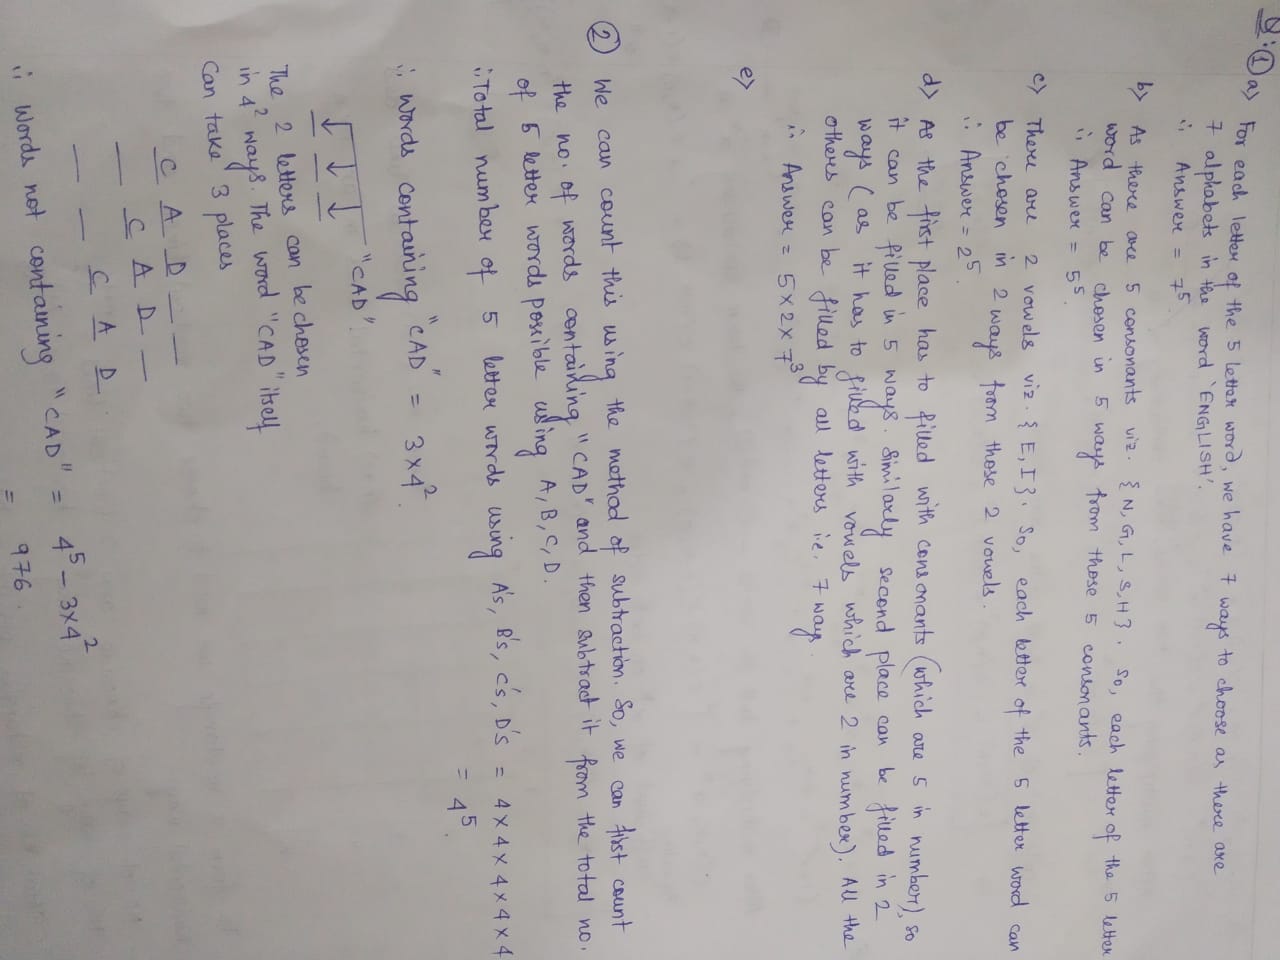 Q:① a) For each letter of the 5 letter word, we have 7 ways to choose as there are
7 alphabets in the word 'ENGLISH'.
∴ Answer = 7⁵.
b) As there are 5 consonants viz. {N,G,L,S,H}. So, each letter of the 5 letter
word can be chosen in 5 ways from those 5 consonants.
∴ Answer = 5⁵.
c) There are 2 vowels viz. {E,I}. So, each letter of the 5 letter word can
be chosen in 2 ways from those 2 vowels.
∴ Answer = 2⁵.
d) As the first place has to filled with consonants (which are 5 in number), so
it can be filled in 5 ways. Similarly second place can be filled in 2
ways (as it has to filled with vowels which are 2 in number). All the
others can be filled by all letters i.e. 7 ways.
∴ Answer = 5×2×7³
e)
② We can count this using the method of subtraction. So, we can first count
the no. of words containing "CAD" and then subtract it from the total no.
of 5 letter words possible using A, B, C, D.
∴ Total number of 5 letter words using A's, B's, C's, D's = 4×4×4×4×4
= 4⁵.
∴ words containing "CAD" = 3×4².
"CAD"
The 2 letters can be chosen
in 4² ways. The word "CAD" itself
can take 3 places
C A D _ _
_ C A D _
_ _ C A D
∴ Words not containing "CAD" = 4⁵ - 3×4²
= 976.